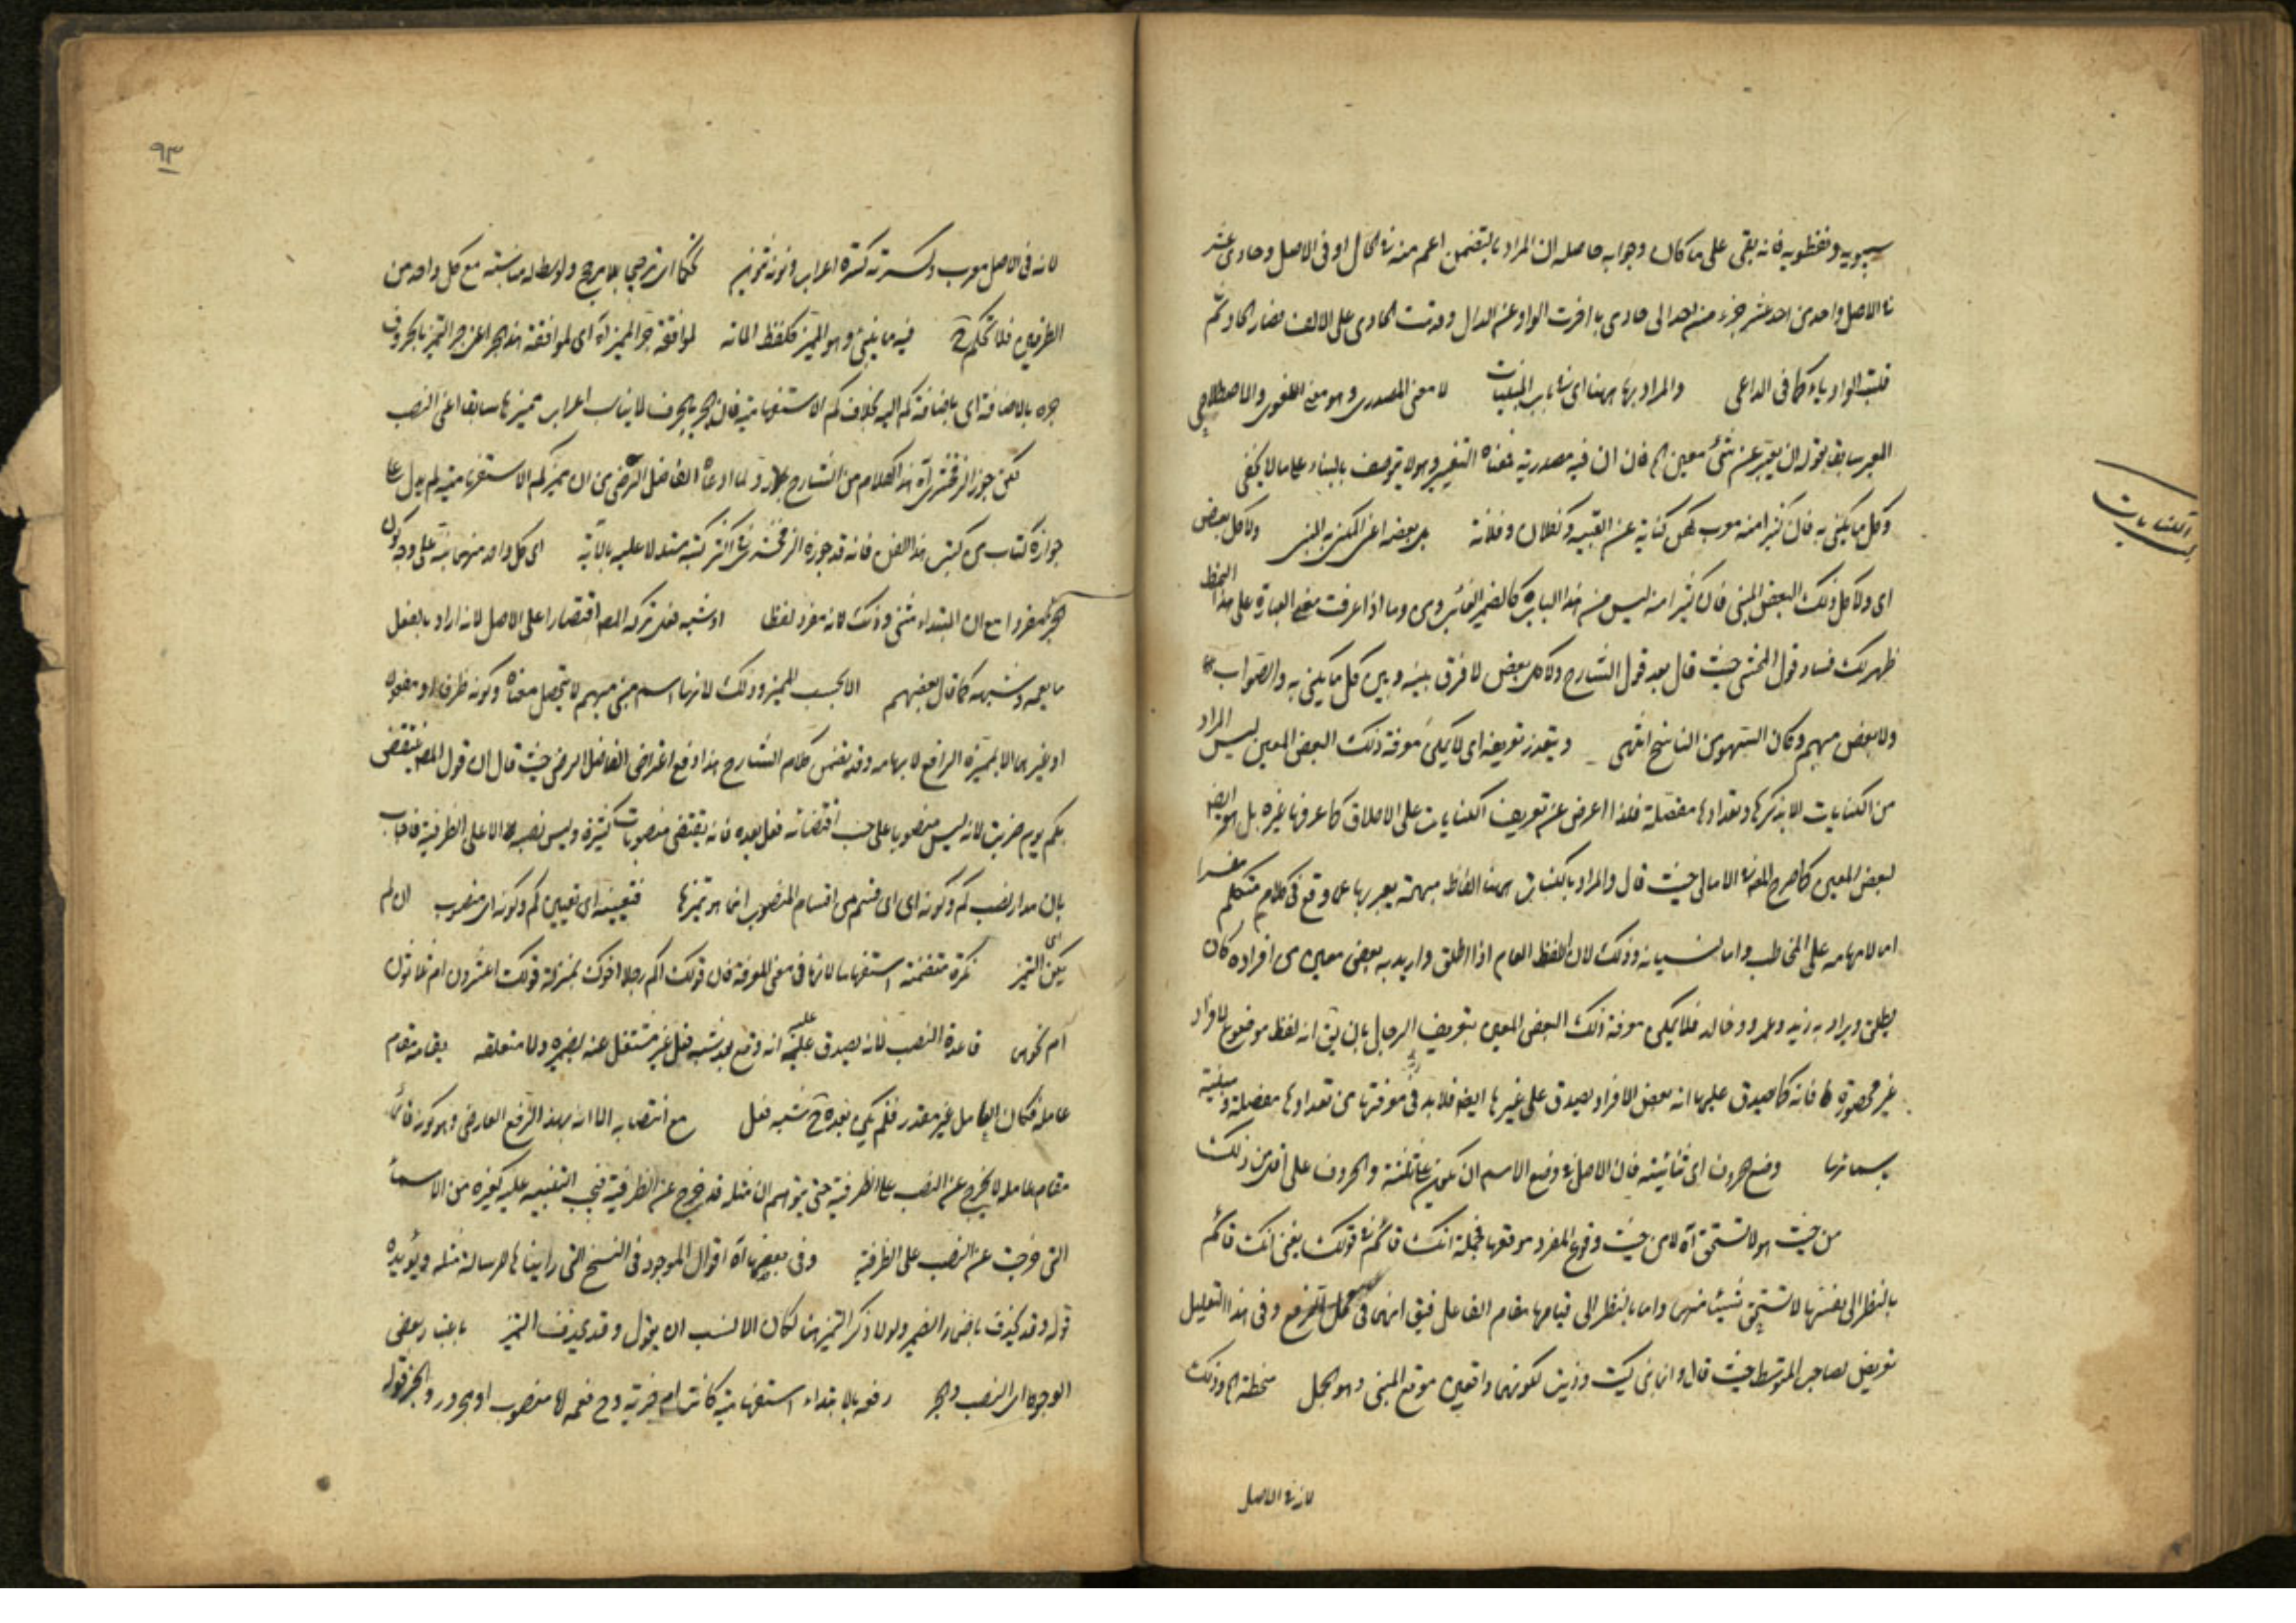 سيبويه ونفطويه فانه بقى على ما كان وجوابه حاصله ان المراد بالتضمن اعم منه فى الحال او فى الاصل وحادى عشر
فى الاصل واحد من احد عشر جزء من احد الى حادى بأ اخرت الواو عن الدال وقدمت الحاء على الالف فصار الحادو ثم
قلبت الواو ياء كما فى الداعى والمراد بها ههنا اى فى باب المبنيات لا معنى المصدرى وهو معنى اللغوى والاصطلاحى
المعبر سابقا بقوله ان يعبر عن شئ معين الخ فان ان فيه مصدرية فمعناه التعبير وهو لا يوصف بالبناء على ما لا يخفى
وكل ما يكنى به فان كثيرا منه معرب كهن كناية عن القبيح وكفلان وفلانة بل بعضه اعنى المكنى به المبنى ولا كل بعض
اى ولا كل ذلك البعض المبنى فان كثيرا منه ليس من هذا الباب كالضمير الغائب وما ومن واذا عرفت معنى العبارة على هذا النمط
ظهر لك فساد قول المحشى حيث قال بعد قول الشارح ولا كل بعض لا فرق بينه وبين كل ما يكنى به والصواب
ولا بعض مبهم وكان السهو من الناسخ انتهى ويتعذر تعريفه اى لا يمكن معرفة ذلك البعض المعين ليس المراد
من الكنايات الا بذكرها وتعدادها مفصلة فلذا اعرض عن تعريف الكنايات على الاطلاق كما عرفها غيره بل هو ايضا
لبعض المعين كما صرح المص فى الامالى حيث قال والمراد بالكنايات ههنا الفاظ مبهمة يعبر بها عما وقع فى كلام متكلم مفسرا
اما لابهامه على المخاطب واما لنسيانه وذلك لان اللفظ العام اذا اطلق واريد به بعض معين من افراده كان
يطلق ويراد به زيد وعمرو وخالد فلا يمكن معرفة ذلك البعض المعين بتعريف الرجال بان يق انه لفظ موضوع لافراد
غير محصورة فانه كما صدق عليها انه بعض الافراد يصدق على غيرها ايضا فلا بد فى معرفتها من تعدادها مفصلة مبنية
باسمائها وضع الحروف اى ثنائيته فان الاصل فى وضع الاسم ان يكون على ثلثة والحروف على اقل من ذلك
من حيث هو لا تستحق آه لا من حيث وقوع المفرد موقعها فجملة انك قائم فى قولك يعنى انك قائم
بالنظر الى نفسها لا تستحق شيئا منهما واما بالنظر الى قيامها مقام الفاعل فيق انها فى محل الرفع وفى هذا التعليل
تعريض لصاحب المتوسط حيث قال وانما بنى كيت وذيت لكونهما واقعين موقع المبنى وهو الجمل منحطة الخ وذلك
لانه فى الاصل
الكنايات
٩٣
لانه فى الاصل معرب وكسرته كسرة اعراب ونونه تنوين تحكما اى ترجيحا بلا مرجح ولوسطه مناسبته مع كل واحد من
الطرفين فلا تحكم ح فيه ما ينبنى وهو المميز كلفظ المائة لموافقة جر المميز آه اى لموافقة هذا الجر اعنى جر التميز بالحروف
جره بالاضافة اى باضافة كم اليه بخلاف كم الاستفهامية فان الجر بالحرف لا يناسب اعراب تميزها سابقا اعنى النصب
لكن جوز الزمخشرى آه هذا الكلام من الشارح رد لما ادعاه الفاضل الرضى من ان مميز كم الاستفهامية لم يدل على
جوازه كتاب من كتب هذا الفن فانه قد جوزه الزمخشرى فى اكثر كتبه مستدلا عليه بالآية اى كل واحد منهما بنته على وجه كون
الخبر مفردا مع ان المبتداء مثنى وذلك لانه مفرد لفظا او شبه فعل تركه المص اقتصارا على الاصل لانه اراد بالفعل
ما يعمه وشبهه كما قال بعضهم الا بحسب المميز وذلك لانهما اسم مبنى مبهم لا يتحصل معناه وكونه ظرفا او مفعولا
او غيرهما الا بمميزه الرافع لابهامه وقد تضمن كلام الشارح هذا دفع اعتراض الفاضل الرضى حيث قال ان قول المص ينتقض
بكم يوم ضربت لانه ليس منصوبا على حسب اقتضاء فعل بعده فانه يقتضى منصوبات كثيرة وليس نصبه الا على الظرفية فاجاب
بان مدار نصب كم وكونه اى اى قسم من اقسام المنصوب انما هو تميزها فتعيينه اى تعيين كم وكونه اى منصوب ان لم
يكن اى التميز نكرة متضمنة استفهاما لانها فى معنى المعرفة فان قولك اكم رجلا اخوك بمنزلة قولك اعشرون ام ثلاثون
ام نحوهن قاعدة النصب لانه يصدق عليه انه وقع بعد شبه فعل غير مشتغل عنه بضميره ولا متعلقه بقيامه مقام
عامله فكان العامل غير مقدر فلم يكن بعده ح شبه فعل مع انتصابه الا انه بهذا الرفع العارضى وهو كونه قائما
مقام عامله لا يخرج عن النصب على الظرفية حتى يتوهم ان مثله قد خرج عن الظرفية فيجب التنبيه عليه كغيره من الاسماء
التى خرجت عن النصب على الظرفية وفى بعضها آه اقول الموجود فى النسخ التى رايناها لهذه الرسالة مثله ويؤيده
قوله وقد يحذف باضمار الضمير ولولا ذكر التميز هنا لكان الانسب ان يقول وقد يحذف التميز باعتبار بعض
الوجوه اى النصب والجر رفعه بالابتداء استفهامية كانت ام خبرية وح فعمة لا منصوب او مجرور والخبر قوله